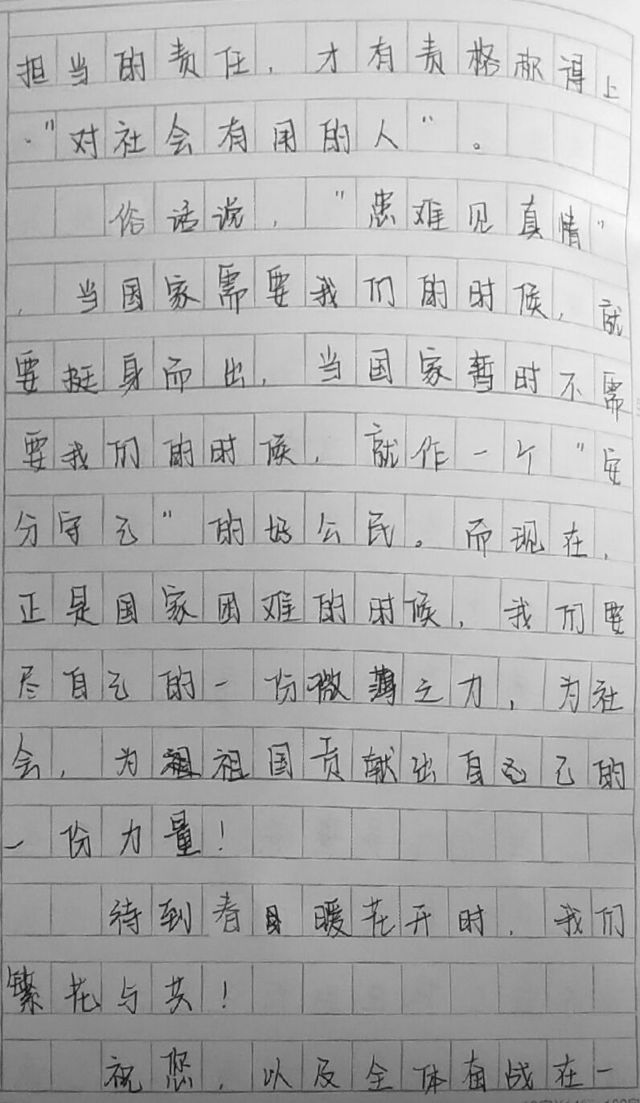 担当的责任，才有责格称得上
"对社会有用的人"。
俗话说，"患难见真情"
，当国家需要我们的时候，就
要挺身而出，当国家暂时不需
要我们的时候，就作一个"安
分守己"的好公民。而现在，
正是国家困难的时候，我们要
尽自己的一份微薄之力，为社
会，为祖国贡献出自己的
一份力量！
待到春日暖花开时，我们
繁花与共！
祝您，以及全体奋战在一